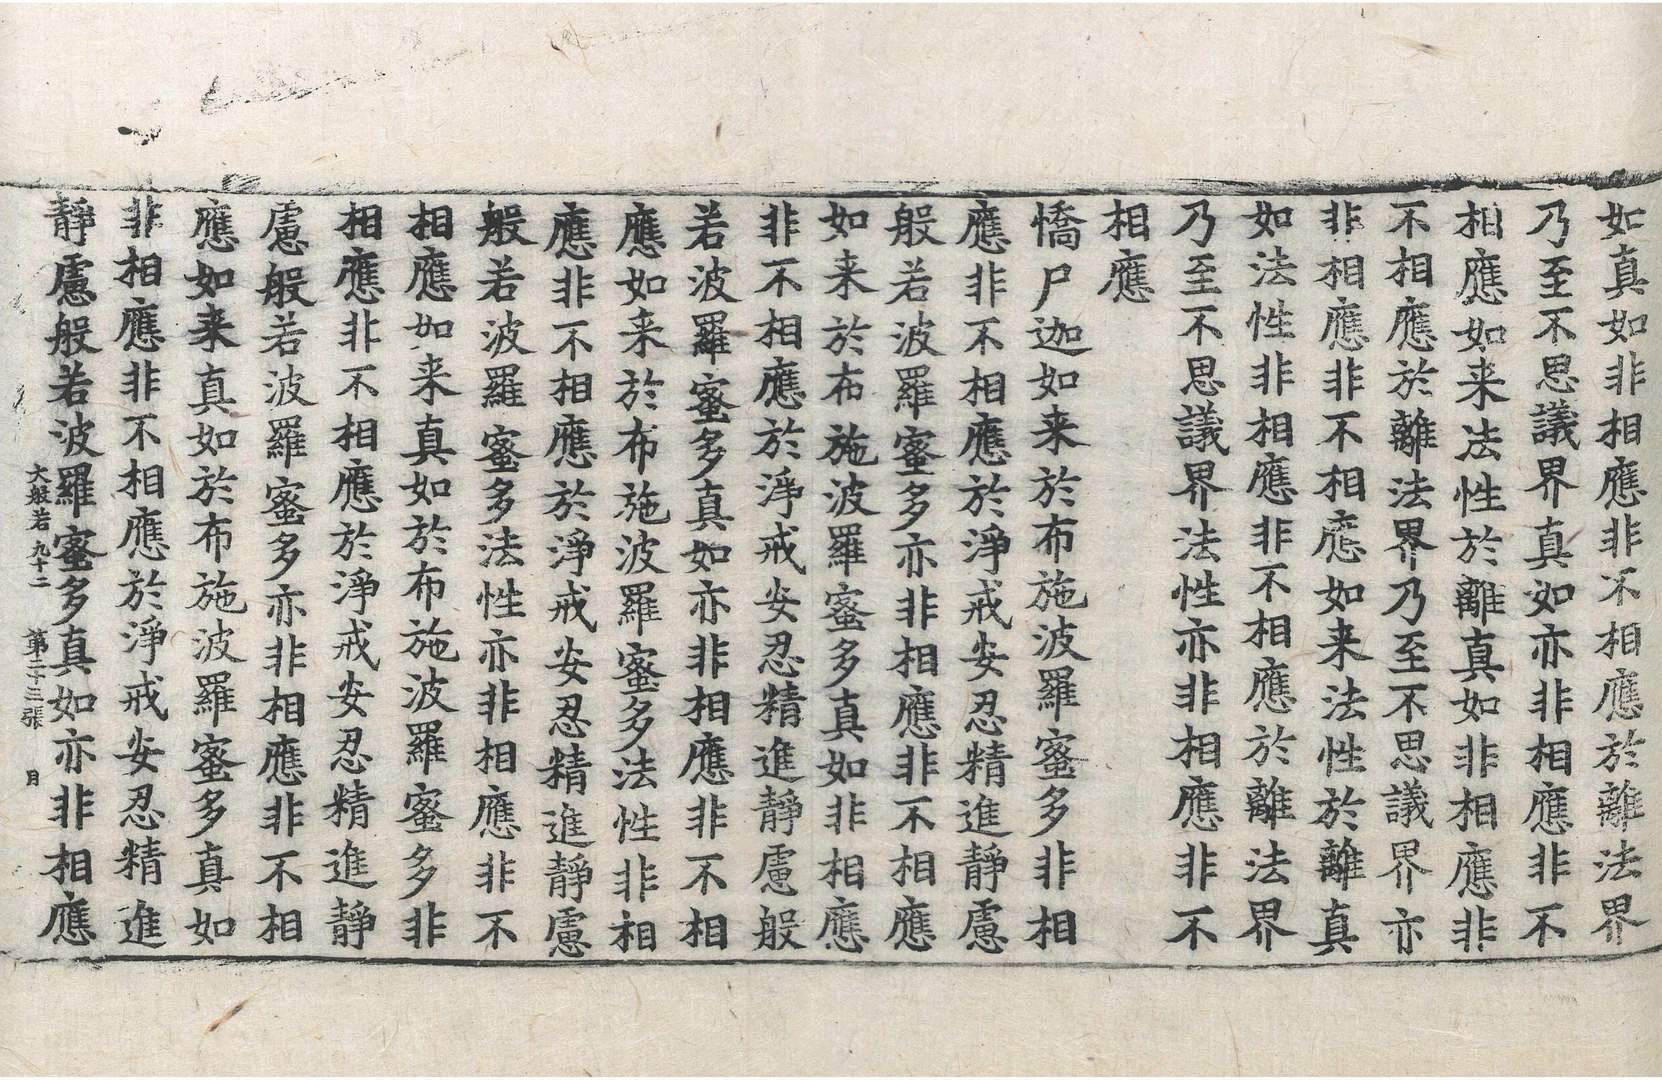 如真如非相應非不相應於離法界
乃至不思議界真如亦非相應非不
相應如来法性於離真如非相應非
不相應於離法界乃至不思議界亦
非相應非不相應如来法性於離真
如法性非相應非不相應於離法界
乃至不思議界法性亦非相應非不
相應
憍尸迦如来於布施波羅蜜多非相
應非不相應於淨戒安忍精進靜慮
般若波羅蜜多亦非相應非不相應
如来於布施波羅蜜多真如非相應
非不相應於淨戒安忍精進靜慮般
若波羅蜜多真如亦非相應非不相
應如来於布施波羅蜜多法性非相
應非不相應於淨戒安忍精進靜慮
般若波羅蜜多法性亦非相應非不
相應如来真如於布施波羅蜜多非
相應非不相應於淨戒安忍精進靜
慮般若波羅蜜多亦非相應非不相
應如来真如於布施波羅蜜多真如
非相應非不相應於淨戒安忍精進
靜慮般若波羅蜜多真如亦非相應
大般若 九十二 第二十三張 月